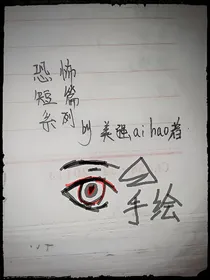 恐怖
短篇
系列
by 美强aihao者
手绘